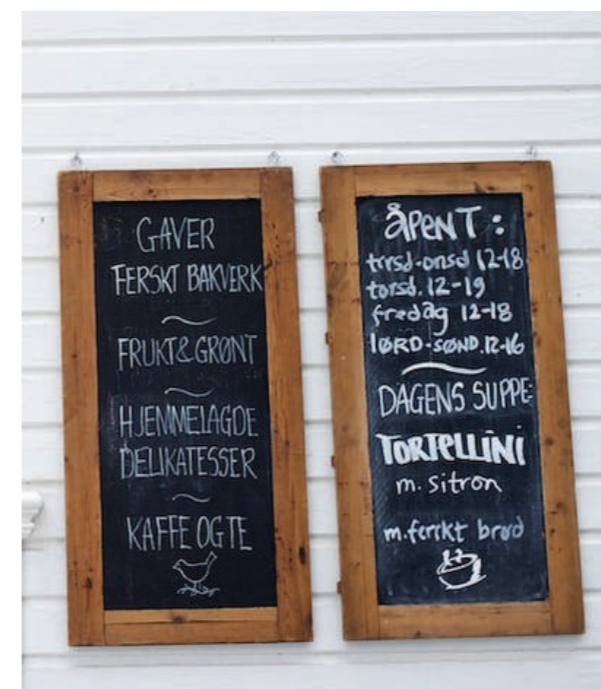 GAVER
FERSKT BAKVERK
FRUKT & GRØNT
HJEMMELAGDE
DELIKATESSER
KAFFE OG TE
ÅPENT:
tirsd-onsd 12-18
torsd. 12-19
fredag 12-18
lØRD-SØND. 12-16
DAGENS SUPPE:
TORTELLINI
m. sitron
m. ferskt brød